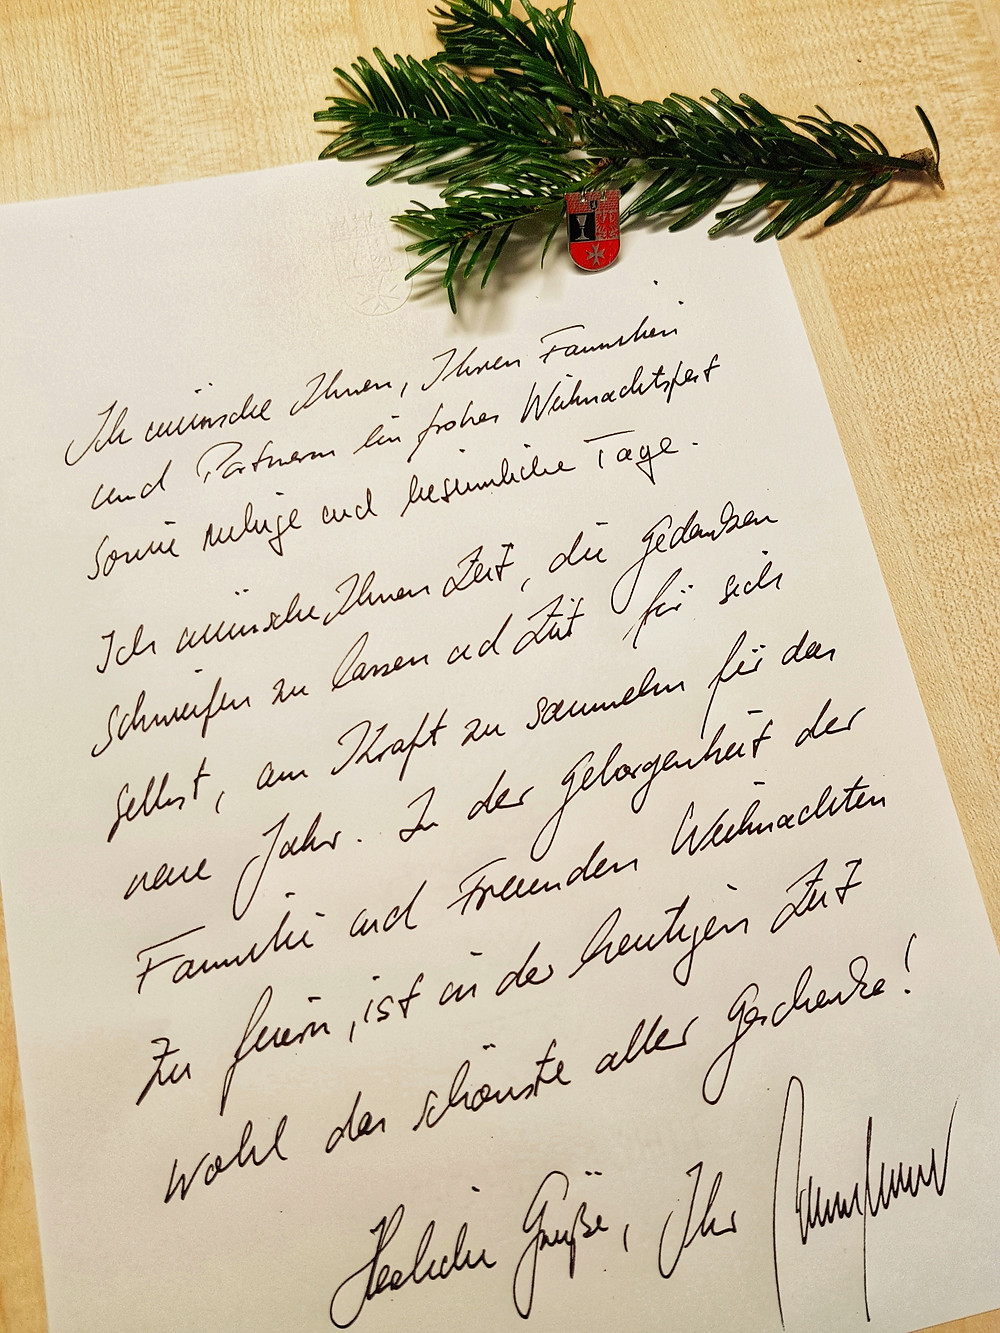 Ich wünsche Ihnen, Ihren Familien
und Partnern ein frohes Weihnachtsfest
sowie ruhige und besinnliche Tage.
Ich wünsche Ihnen Zeit, die Gedanken
schweifen zu lassen und Zeit für sich
selbst, um Kraft zu sammeln für das
neue Jahr. In der Geborgenheit der
Familie und Freunden Weihnachten
zu feiern, ist in der heutigen Zeit
wohl das schönste aller Geschenke!
Herzliche Grüße, Ihr